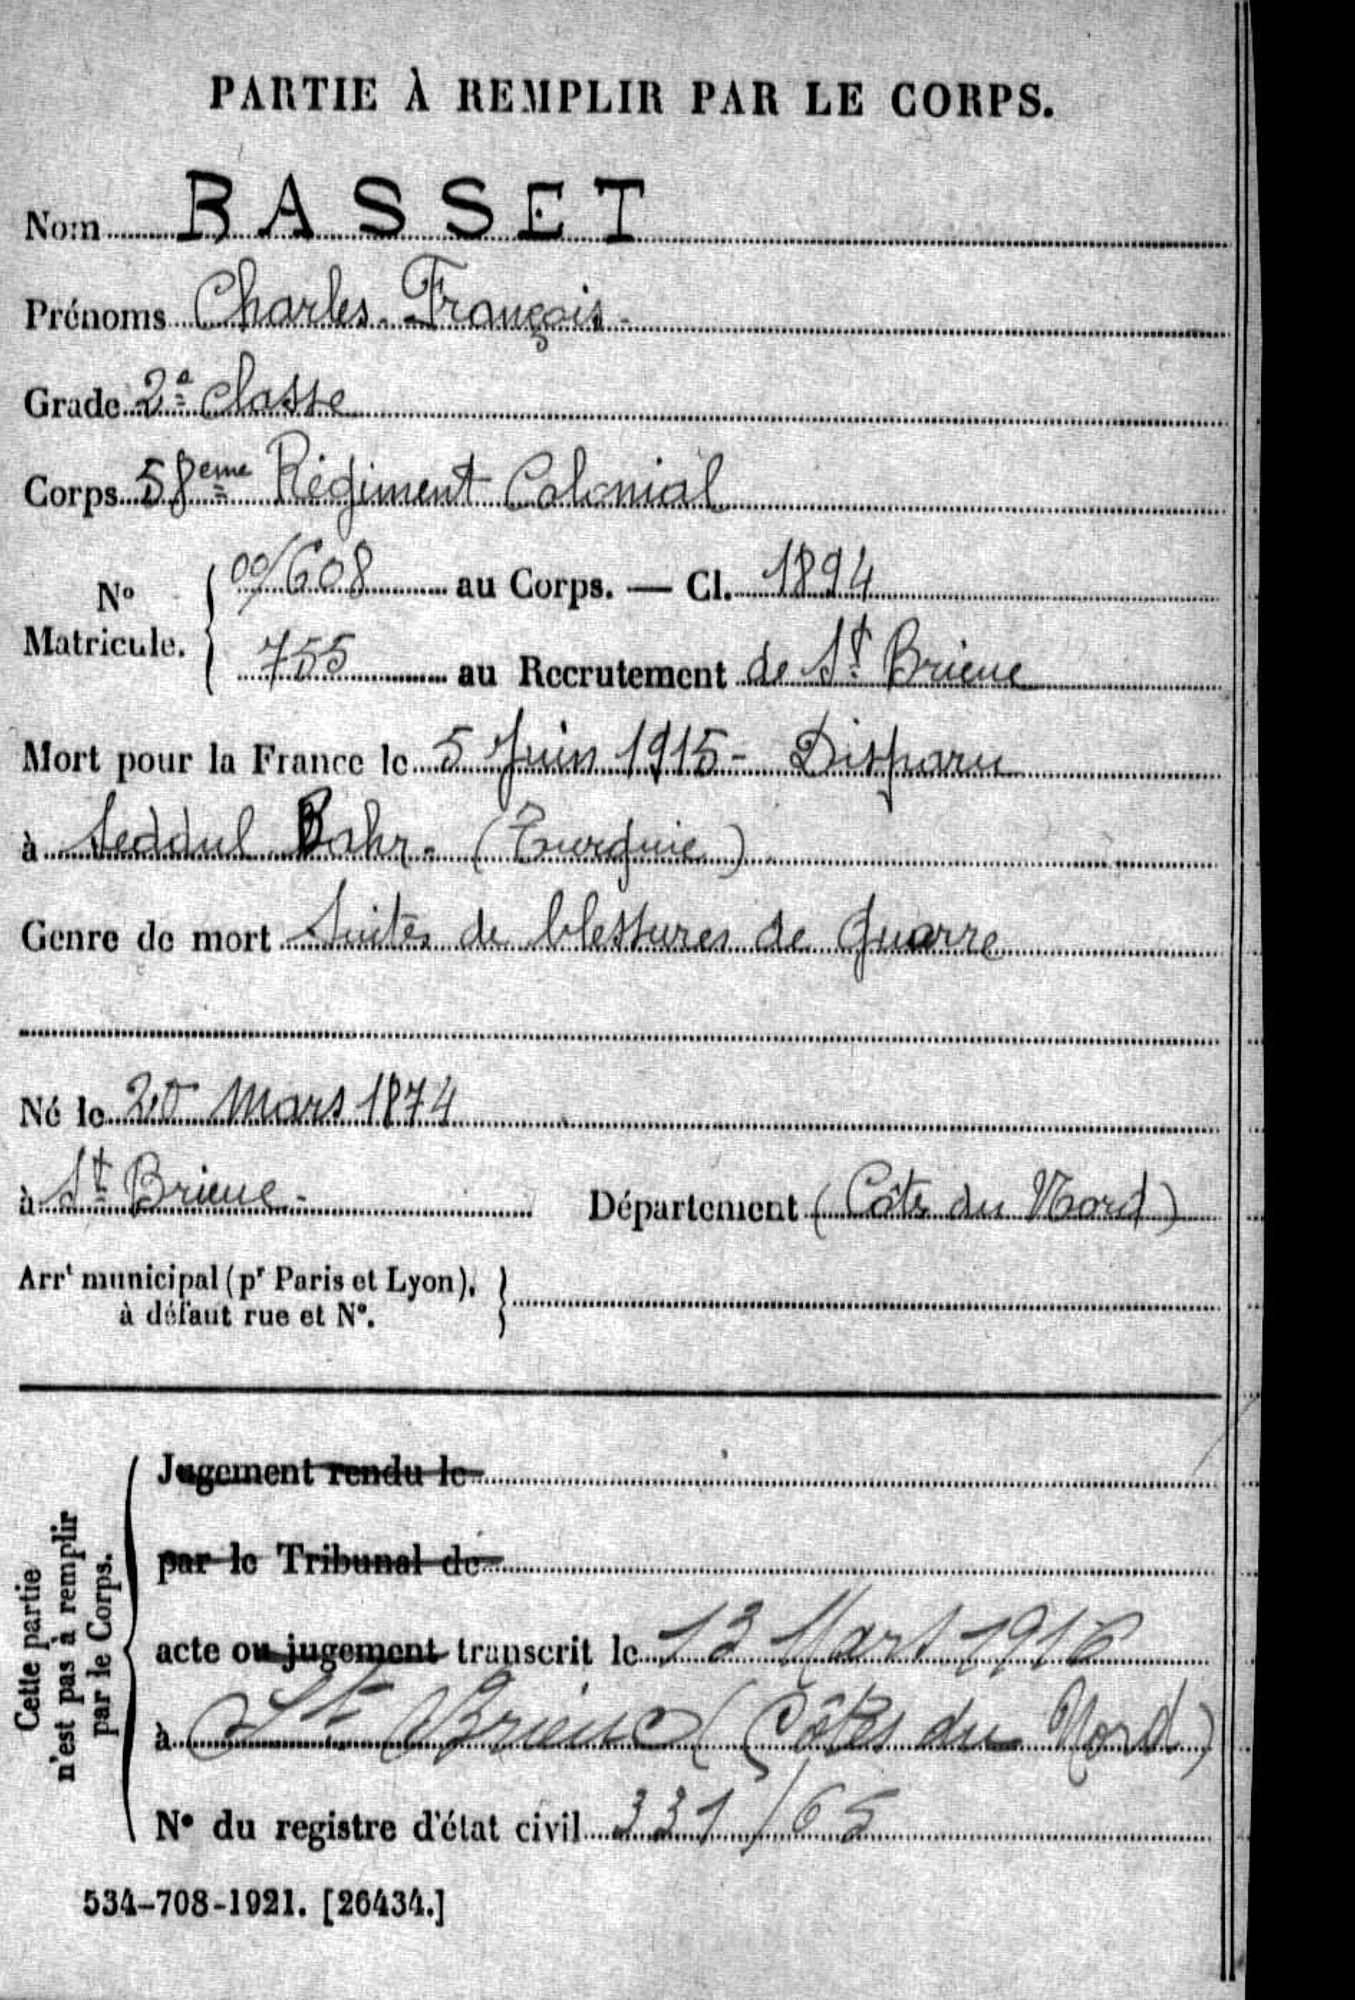 PARTIE À REMPLIR PAR LE CORPS.
Nom BASSET
Prénoms Charles - François -
Grade 2e classe
Corps 58eme Régiment Colonial
No Matricule. 00/608 au Corps. — Cl. 1894
755 au Recrutement de St Brieuc
Mort pour la France le 5 Juin 1915 - Disparu
à Seddul Bahr - (Turquie)
Genre de mort Suites de blessures de guerre
Né le 20 Mars 1874
à St Brieuc - Département (Côtes du Nord)
Arrt municipal (pr Paris et Lyon),
à défaut rue et No.
Cette partie
n'est pas à remplir
par le Corps.
Jugement rendu le
par le Tribunal de
acte ou jugement transcrit le 13 Mars 1916
à St Brieuc (Côtes du Nord)
No du registre d'état civil 331/65
534-708-1921. [26434.]